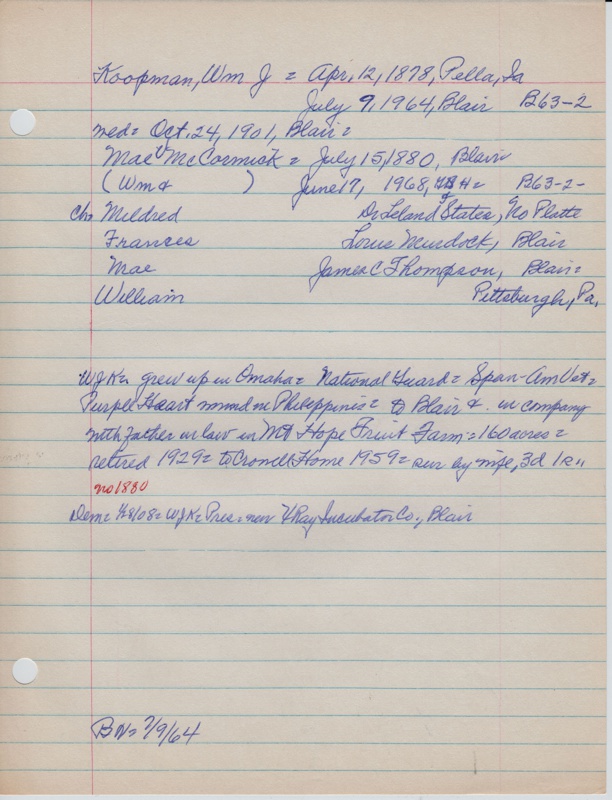 Koopman, Wm J = Apr, 12, 1878, Pella, Ia
July 9, 1964, Blair B63-2
med = Oct. 24, 1901, Blair =
Mae V McCormick = July 15, 1880, Blair
(Wm & ) June 17, 1968, B63-2-
chn Mildred Dr Leland J States, No Platte
Frances Louis Murdock, Blair
Mae James C Thompson, Blair =
William Pittsburgh, Pa,
WJK = grew up in Omaha = National Guard = Span-Am Vet =
Purple Heart wound in Philippines = to Blair & in company
with father in law in Mt Hope Fruit Farm = 160 acres =
retired 1929 = to Crowell Home 1959 = sur by wife, 3d 1s,,
no 1880
Dem = WJK = Pres = new X Ray Incubator Co., Blair
BN = 7/9/64